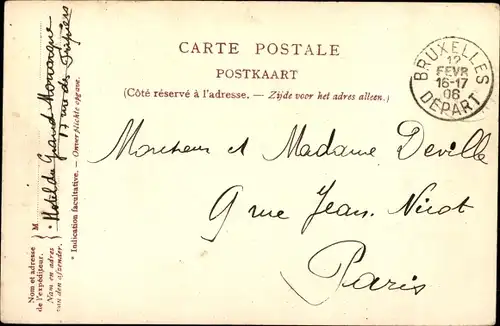 CARTE POSTALE
POSTKAART
(Côté réservé à l'adresse. — Zijde voor het adres alleen.)
BRUXELLES
12
FEVR
16-17
06
DEPART
Monsieur et Madame Deville
9 rue Jean. Nicot
Paris
Nom et adresse
de l'expéditeur.
Nom en adres
van den afzender.
M
* Hotel du Grand Monarque
rue des Fripiers
* Indication facultative. — Onverplichte opgave.